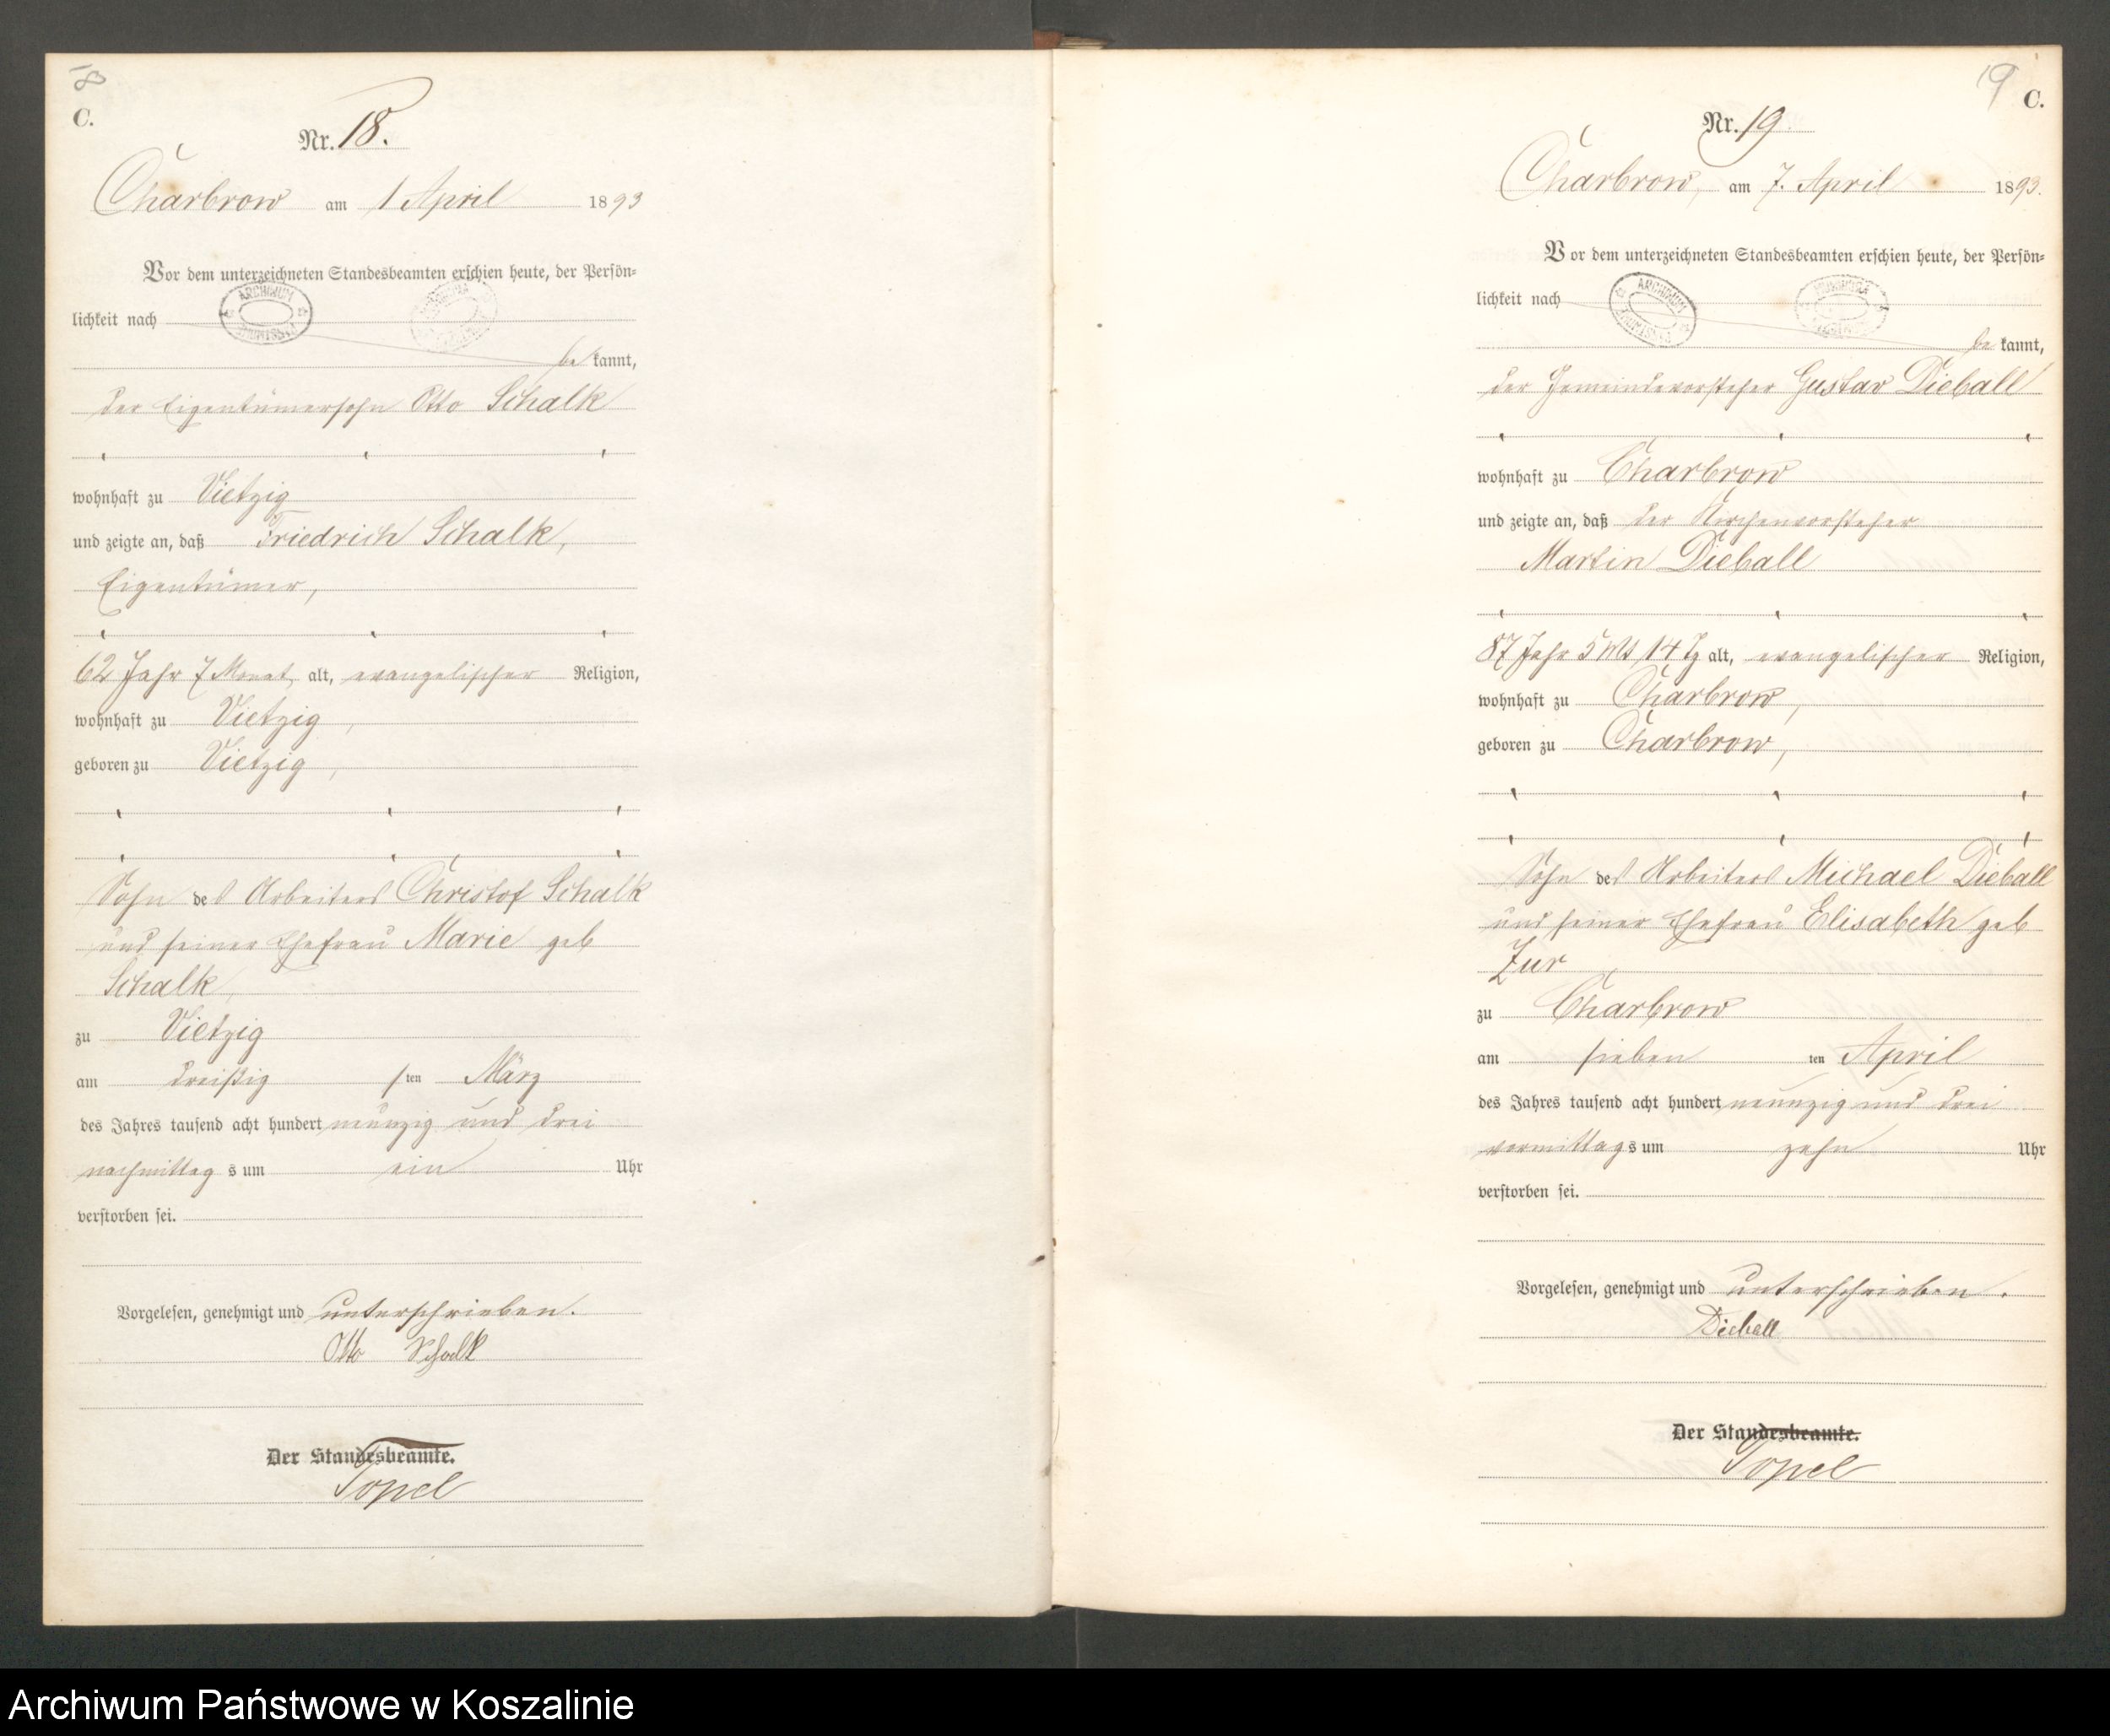 18
C.
Nr. 18.
Charbrow am 1 April 1893
Vor dem unterzeichneten Standesbeamten erschien heute, der Persön-
lichkeit nach
ARCHIWUM
bekannt,
der Eigentümersohn Otto Schalk
wohnhaft zu Vietzig
und zeigte an, daß Friedrich Schalk,
Eigentümer,
62 Jahr 7 Monat, alt, evangelischer Religion,
wohnhaft zu Vietzig,
geboren zu Vietzig,
Sohn des Arbeiters Christof Schalk
und seiner Ehefrau Marie geb
Schalk,
zu Vietzig
am dreißigsten März
des Jahres tausend acht hundert neunzig und drei
nachmittags um ein Uhr
verstorben sei.
Vorgelesen, genehmigt und unterschrieben.
Otto Schalk
Der Standesbeamte.
Topel
19
C.
Nr. 19
Charbrow, am 7. April 1893.
Vor dem unterzeichneten Standesbeamten erschien heute, der Persön-
lichkeit nach
ARCHIWUM
bekannt,
der Gemeindevorsteher Gustav Dieball
wohnhaft zu Charbrow
und zeigte an, daß der Kirchenvorsteher
Martin Dieball
87 Jahr 5 Mt 14 Tg alt, evangelischer Religion,
wohnhaft zu Charbrow,
geboren zu Charbrow,
Sohn des Arbeiters Michael Dieball
und seiner Ehefrau Elisabeth geb
Zur
zu Charbrow
am siebenten April
des Jahres tausend acht hundert neunzig und drei
vormittags um zehn Uhr
verstorben sei.
Vorgelesen, genehmigt und unterschrieben.
Dieball
Der Standesbeamte.
Topel
Archiwum Państwowe w Koszalinie